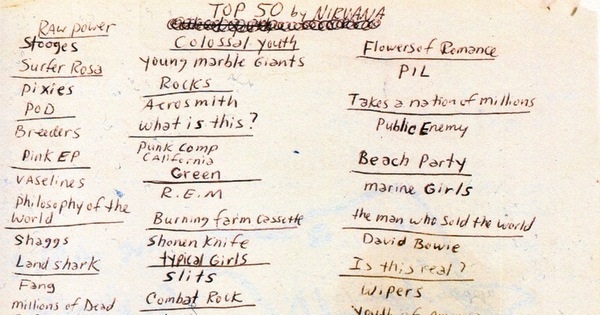 TOP 50 by NIRVANA
Raw power
Stooges
Surfer Rosa
pixies
POD
Breeders
Pink EP
vaselines
Philosophy of the
world
Shaggs
Land shark
Fang
millions of Dead
Colossal Youth
Young marble Giants
Rocks
Aerosmith
What is this?
Punk Comp
California
Green
R.E.M
Burning farm cassette
Shonen Knife
typical Girls
Slits
Combat Rock
Flowers of Romance
PIL
Takes a nation of millions
Public Enemy
Beach Party
marine Girls
the man who sold the world
David Bowie
Is this real?
Wipers
Youth of America